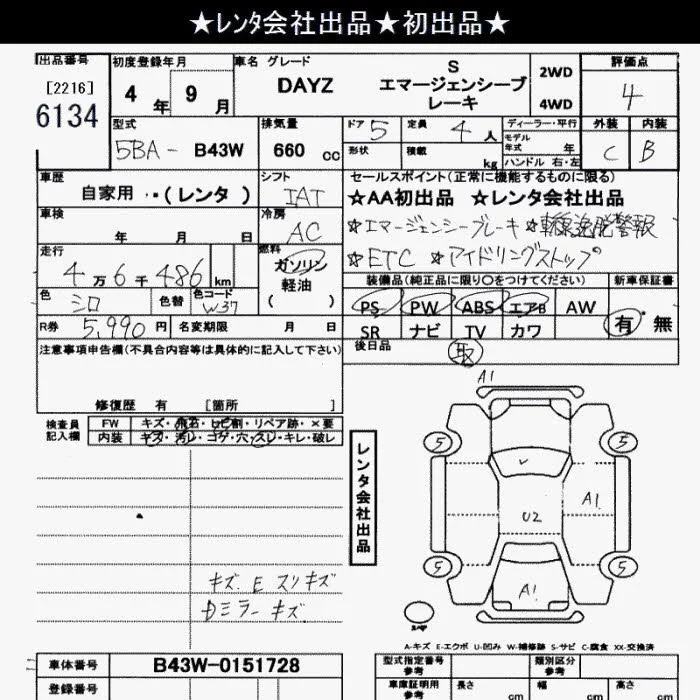 ★レンタ会社出品★初出品★
出品番号
[2216]
6134
初度登録年月
4年 9月
車名 グレード
DAYZ
S
エマージェンシーブレーキ
2WD
4WD
評価点
4
型式
5BA- B43W
排気量
660 cc
ドア 5
定員 4人
ディーラー・平行
モデル年式 年
外装 C
内装 B
形状
積載 kg
ハンドル 右・左
車歴
自家用・・(レンタ)
シフト
IAT
セールスポイント(正常に機能するものに限る)
★AA初出品 ★レンタ会社出品
☆エマージェンシーブレーキ ☆車線逸脱警報
☆ETC ☆アイドリングストップ
車検
年 月 日
冷房
AC
走行
4万6千486km
燃料
ガソリン
軽油
( )
装備品(純正品に限り○をつけてください)
新車保証書
色 シロ
色替
色コード W37
PS PW ABS エアB AW
SR ナビ TV カワ
有・無
R券 5,990円
名変期限 月 日
後日品 取
注意事項申告欄(不具合内容等は具体的に記入して下さい)
修復歴 有 [箇所 ]
検査員記入欄
FW キズ・飛石・ヒビ割・リペア跡・×要
内装 キズ・汚レ・コゲ・穴・スレ・キレ・破レ
レンタ会社出品
A1
5 5
A1
U2
5 5
A1
キズ E スリキズ
Dミラー キズ
スペア
A-キズ E-エクボ U-凹み W-補修跡 S-サビ C-腐食 XX-交換済
車体番号 B43W-0151728
登録番号
型式指定番号 参考
類別区分 参考
車庫証明用 参考
長さ cm
幅 cm
高さ cm